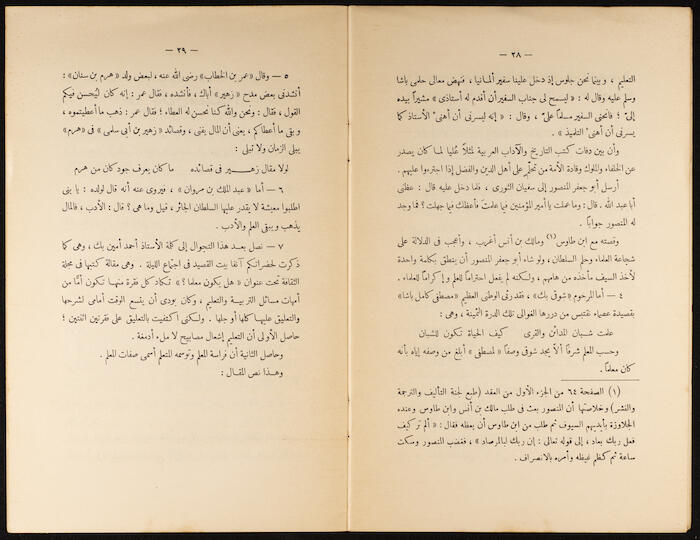 — ٢٨ —
التعليم ، وبينما نحن جلوس إذ دخل علينا سفير ألمانيا ، فنهض معالى حلمى باشا
وسلم عليه وقال له : « ليسمح لى جناب السفير أن أقدم له أستاذى » مشيراً بيده
إلىّ ؛ فانحنى السفير مسلماً علىّ ، وقال : « إنه ليسرنى أن أهنئ الأستاذ كما
يسرنى أن أهنئ التلميذ » .
وأن بين دفات كتب التاريخ والآداب العربية لمثلاً عُليا لما كان يصدر
عن الخلفاء والملوك وقادة الأمة من تحلّم على أهل الدين والفضل إذا اجترءوا عليهم .
أرسل أبو جعفر المنصور إلى سفيان الثورى ، فلما دخل عليه قال : عظنى
أبا عبد الله . قال : وما عملت يا أمير المؤمنين فيما علمت فأعظك فيما جهلت ؟ فما وجد
له المنصور جواباً .
وقصته مع ابن طاوس (١) ومالك بن أنس أغرب ، وأعجب فى الدلالة على
شجاعة العلماء وحلم السلطان ، ولو شاء أبو جعفر المنصور أن ينطق بكلمة واحدة
لأخذ السيف مأخذه من هامهم ، ولكنه لم يفعل احتراماً للعلم وإكراماً للعلماء .
٤ — أما المرحوم «شوقى بك» ، فقد رثى الوطنى العظيم «مصطفى كامل باشا»
بقصيدة عصماء نقتبس من دررها الغوالى تلك الدرة الثمينة ، وهى :
علمت شبان المدائن والقرى كيف الحياة تكون للشبان
وحسب المعلم شرفاً ألا يجد شوقى وصفاً « لمصطفى » أبلغ من وصفه إياه بأنه
كان معلماً .
(١) الصفحة ٦٤ من الجزء الأول من العقد (طبع لجنة التأليف والترجمة
والنشر) وخلاصتها أن المنصور بعث فى طلب مالك بن أنس وابن طاوس وعنده
الجلاوزة بأيديهم السيوف ثم طلب من ابن طاوس أن يعظه فقال : « ألم تر كيف
فعل ربك بعاد ، إلى قوله تعالى : إن ربك لبالمرصاد » ، فغضب المنصور وسكت
ساعة ثم كظم غيظه وأمره بالانصراف .
— ٢٩ —
٥ — وقال «عمر بن الخطاب» رضى الله عنه ، لبعض ولد «هرم بن سنان» :
أنشدنى بعض مدح «زهير» أباك ، فأنشده ، فقال عمر : إنه كان ليُحسن فيكم
القول ، فقال : ونحن والله كنا نحسن له العطاء ؛ فقال عمر : ذهب ما أعطيتموه ،
وبقى ما أعطاكم ، يعنى أن المال يفنى ، وقصائد «زهير بن أبى سلمى» فى «هرم»
يبلى الزمان ولا تبلى :
لولا مقال زهير فى قصائده ما كان يعرف جود كان من هرم
٦ — أما « عبد الملك بن مروان » ، فيروى عنه أنه قال لولده : يا بنى
اطلبوا معيشة لا يقدر عليها السلطان الجائر ، قيل وما هى ؟ قال : الأدب ، فالمال
يذهب ويبقى العلم والأدب .
٧ — نصل بعد هذا التجوال إلى كلة الأستاذ أحمد أمين بك ، وهى كما
ذكرت لحضراتكم آنفا بيت القصيد فى اجتماع الليلة . وهى مقالة كتبها فى مجلة
الثقافة تحت عنوان « هل يكون معلما ؟ » تكاد كل فقرة منها تكون أمّا من
أمهات مسائل التربية والتعليم ، وكان بودى أن يتسع الوقت أمامى لشرحها
والتعليق عليها كلها أو جلها . ولكنى اكتفيت بالتعليق على فقرتين اثنتين ؛
حاصل الأولى أن التعليم إشعال مصابيح لا ملء أدمغة .
وحاصل الثانية أن فراسة المعلم وتوسمه المتعلم أسمى صفات المعلم .
وهذا نص المقال :